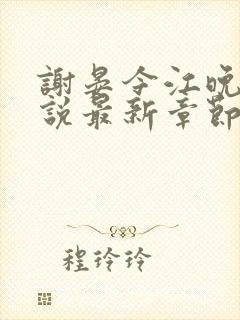 謝晏令江晚
說最新章節
程玲玲